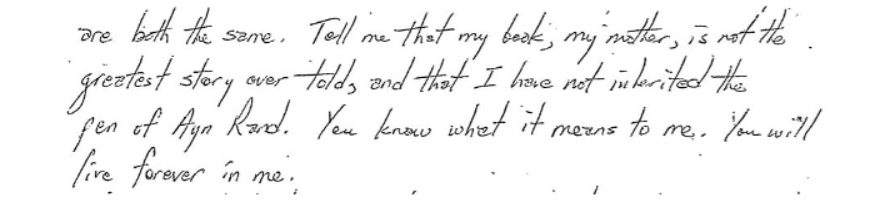 are both the same. Tell me that my book, my mother, is not the
greatest story ever told, and that I have not inherited the
pen of Ayn Rand. You know what it means to me. You will
live forever in me.